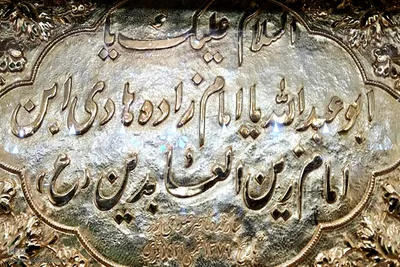 السلام علیک یا
ابو عبدالله یا امام زاده هادی ابن
امام زین العابدین (ع)